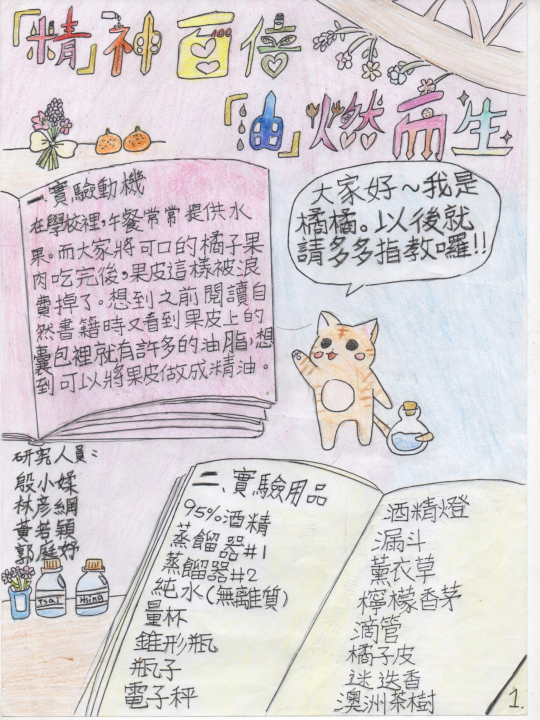 「精」神百倍
「油」燃而生
一、實驗動機
在學校裡,午餐常常提供水
果。而大家將可口的橘子果
肉吃完後,果皮這樣被浪
費掉了。想到之前閱讀自
然書籍時又看到果皮上的
囊包裡就有許多的油脂,想
到可以將果皮做成精油。
大家好~我是
橘橘。以後就
請多多指教囉!!
研究人員:
殷小媃
林彥綱
黃若穎
郭庭妤
Tsai
Hsing
二、實驗用品
95%酒精
蒸餾器#1
蒸餾器#2
純水(無離質)
量杯
錐形瓶
瓶子
電子秤
酒精燈
漏斗
薰衣草
檸檬香茅
滴管
橘子皮
迷迭香
澳洲茶樹
1.